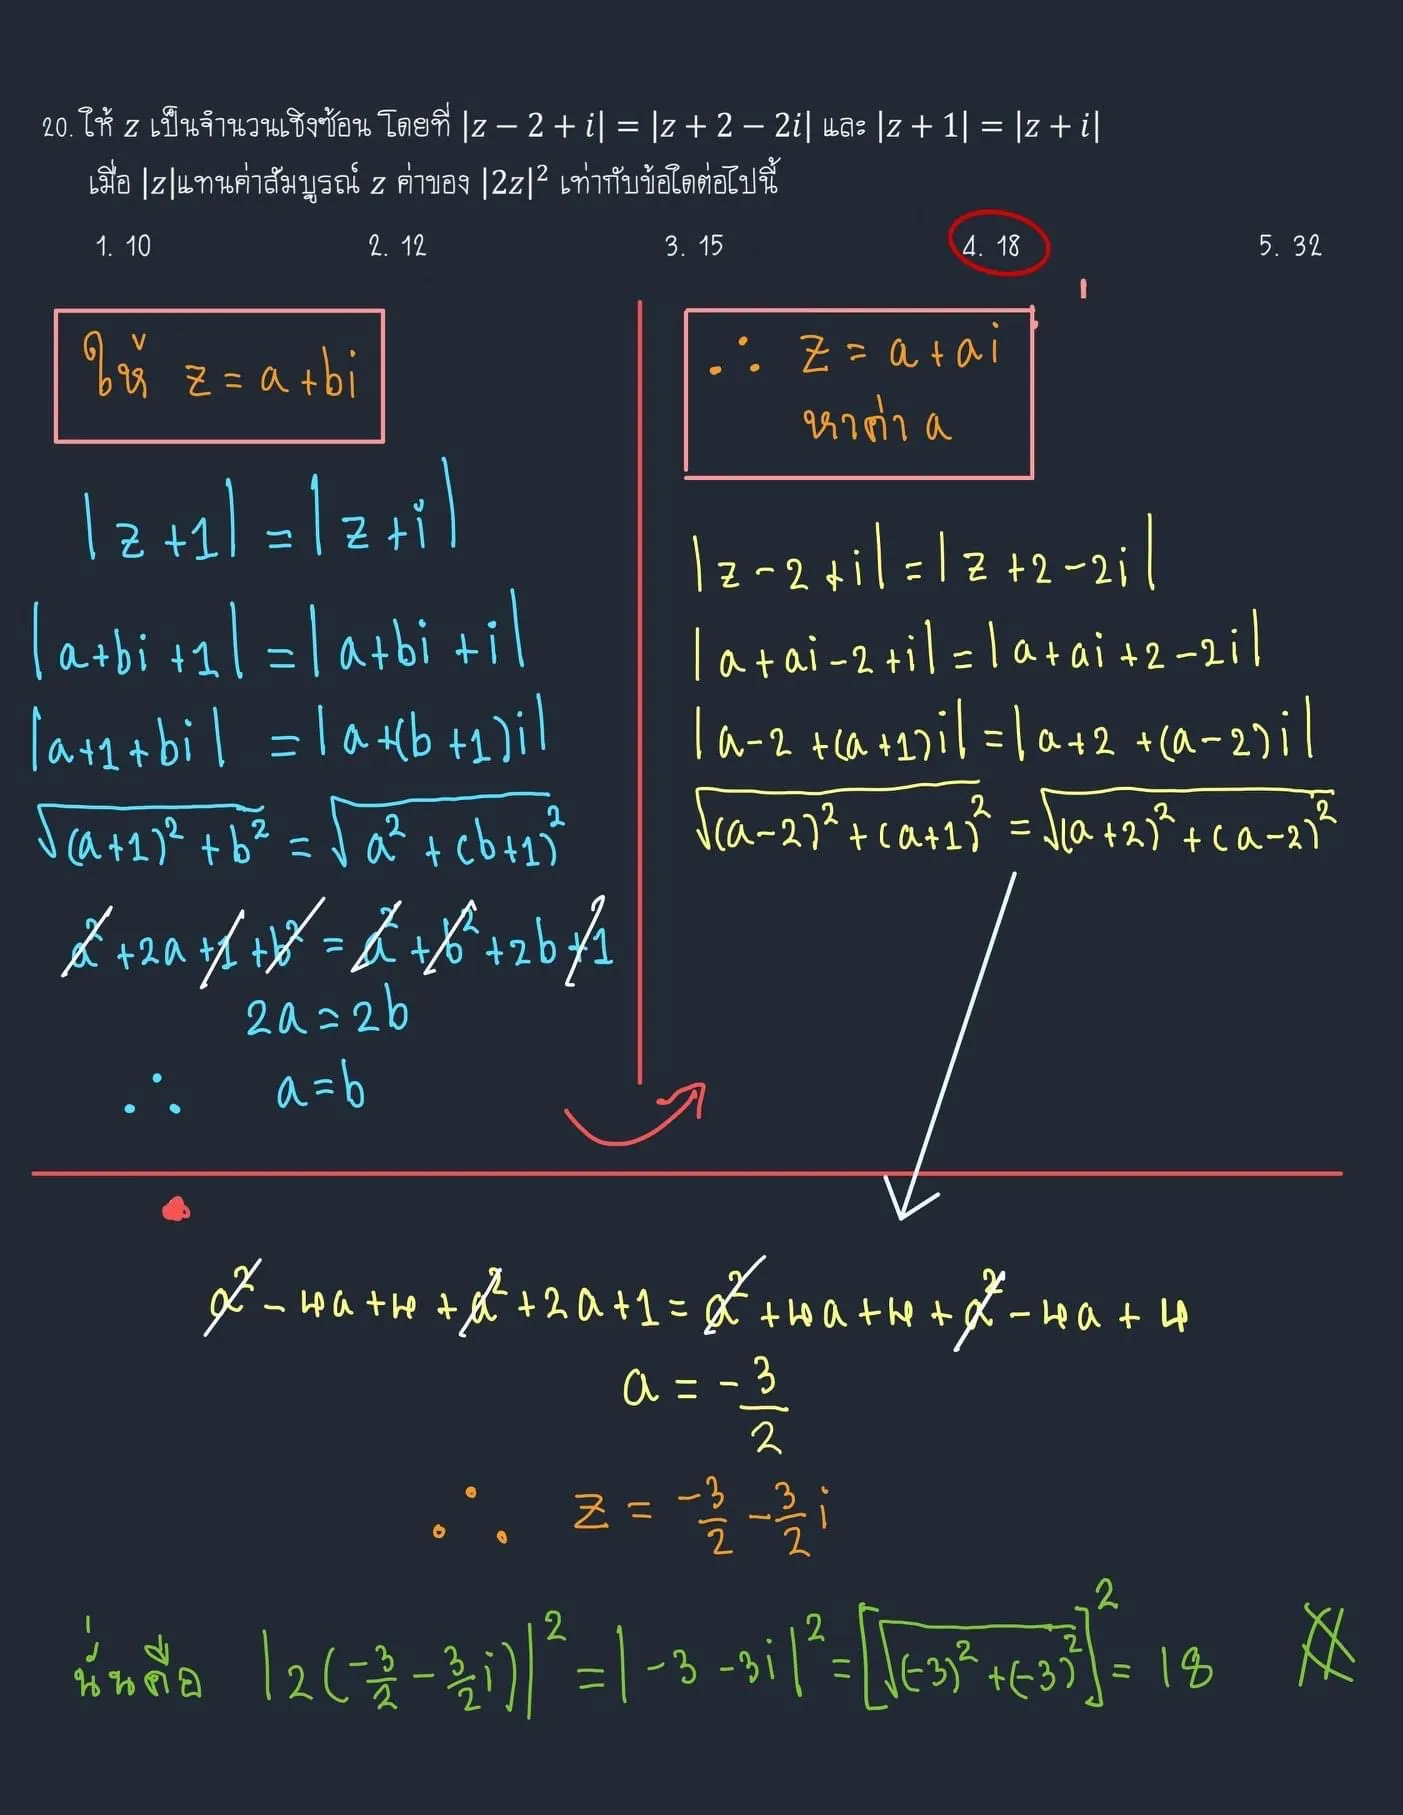 20. ให้ z เป็นจำนวนเชิงซ้อน โดยที่ |z − 2 + i| = |z + 2 − 2i| และ |z + 1| = |z + i|
เมื่อ |z|แทนค่าสัมบูรณ์ z ค่าของ |2z|² เท่ากับข้อใดต่อไปนี้
1. 10 2. 12 3. 15 4. 18 5. 32
ให้ z = a + bi
|z + 1| = |z + i|
|a + bi + 1| = |a + bi + i|
|a + 1 + bi| = |a + (b + 1)i|
√((a+1)² + b²) = √(a² + (b+1)²)
a² + 2a + 1 + b² = a² + b² + 2b + 1
2a = 2b
∴ a = b
∴ z = a + ai
หาค่า a
|z − 2 + i| = |z + 2 − 2i|
|a + ai − 2 + i| = |a + ai + 2 − 2i|
|a − 2 + (a + 1)i| = |a + 2 + (a − 2)i|
√((a−2)² + (a+1)²) = √((a+2)² + (a−2)²)
a² − 4a + 4 + a² + 2a + 1 = a² + 4a + 4 + a² − 4a + 4
a = −3/2
∴ z = −3/2 − 3/2 i
นั่นคือ |2(−3/2 − 3/2 i)|² = |−3 − 3i|² = [√((−3)² + (−3)²)]² = 18